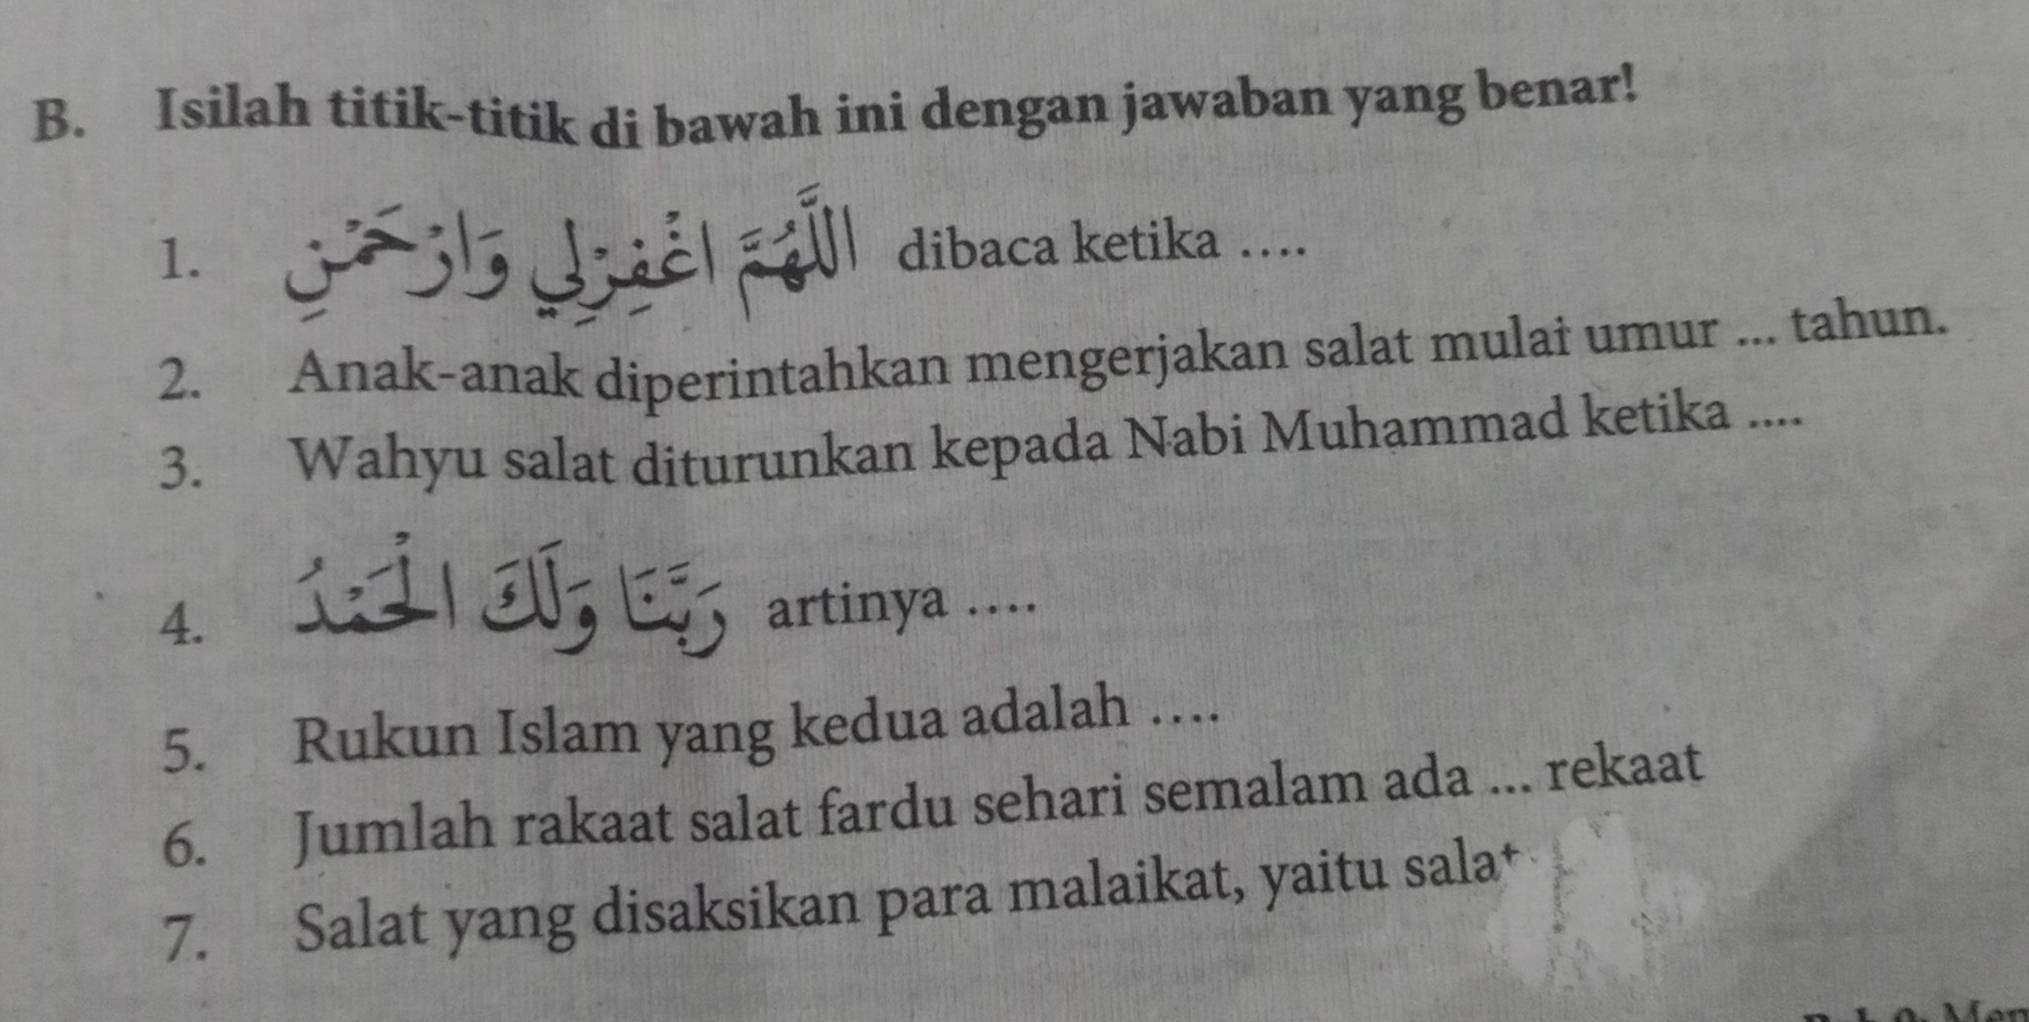 B. Isilah titik-titik di bawah ini dengan jawaban yang benar!
1. اللَّهُمَّ اغْفِرْلِي وَارْحَمْنِ dibaca ketika ....
2. Anak-anak diperintahkan mengerjakan salat mulai umur ... tahun.
3. Wahyu salat diturunkan kepada Nabi Muhammad ketika ....
4. رَبَّنَا وَلَكَ الْحَمْدُ artinya ....
5. Rukun Islam yang kedua adalah ....
6. Jumlah rakaat salat fardu sehari semalam ada ... rekaat
7. Salat yang disaksikan para malaikat, yaitu salat